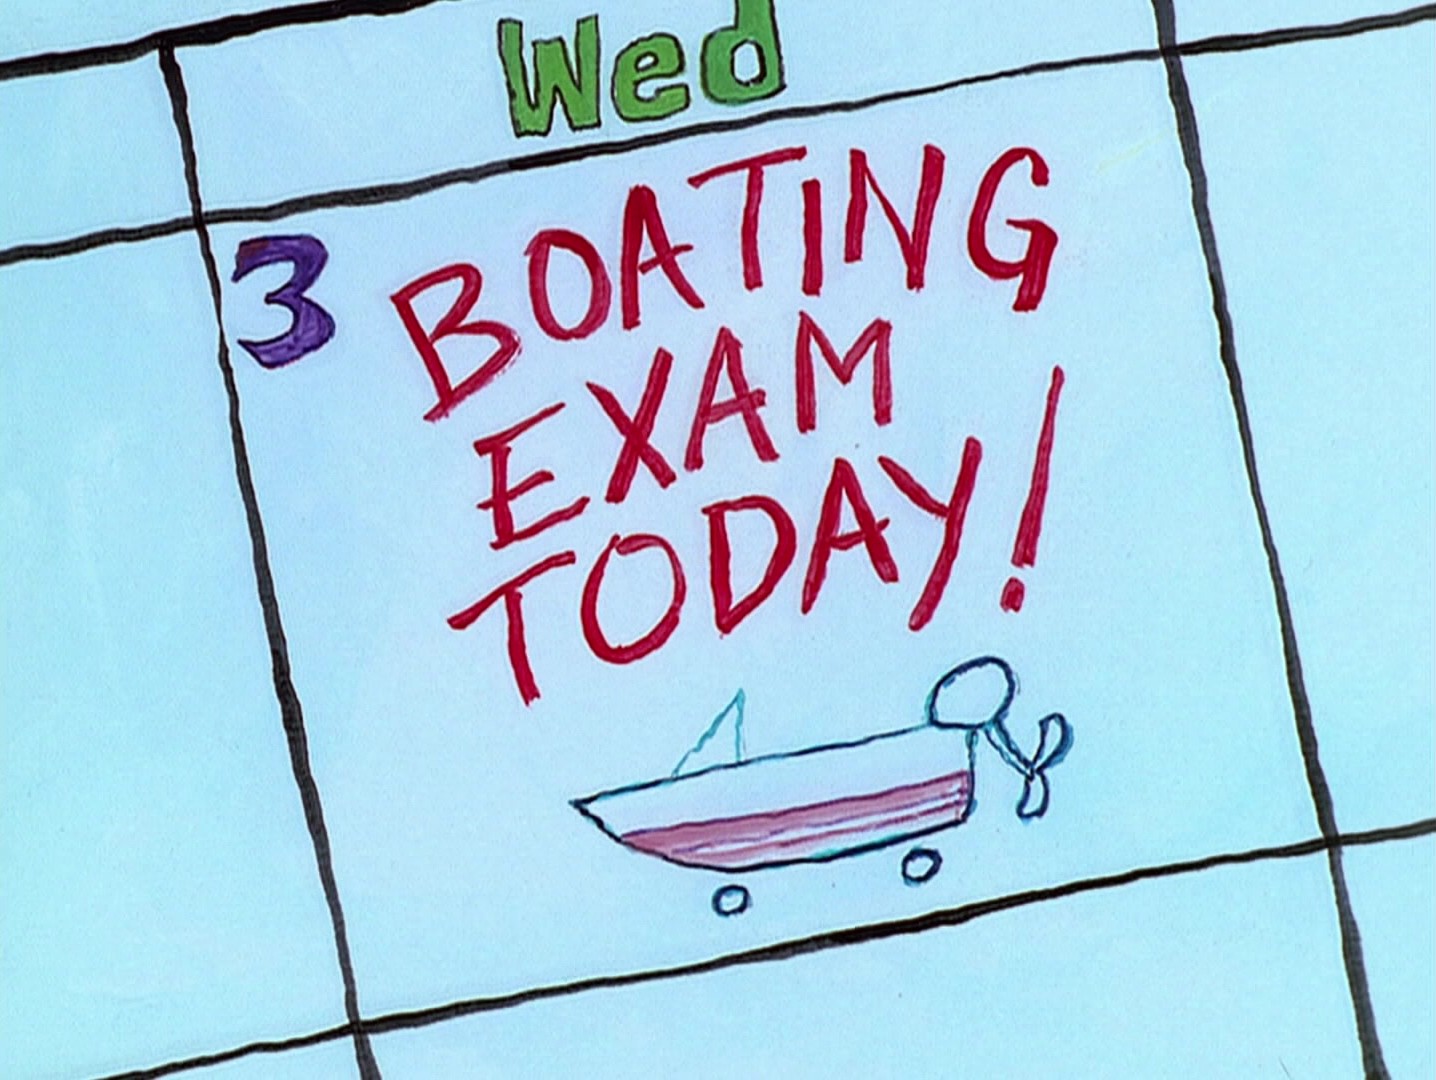 Wed
3
BOATING
EXAM
TODAY!